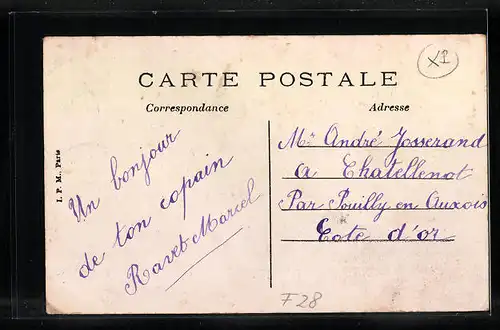 CARTE POSTALE
Correspondance
Adresse
I. P. M., Paris
Un bonjour
de ton copain
Ravet Marcel
Mr André Josserand
a Chatellenot
Par Pouilly en Auxois
Cote d'or
F28